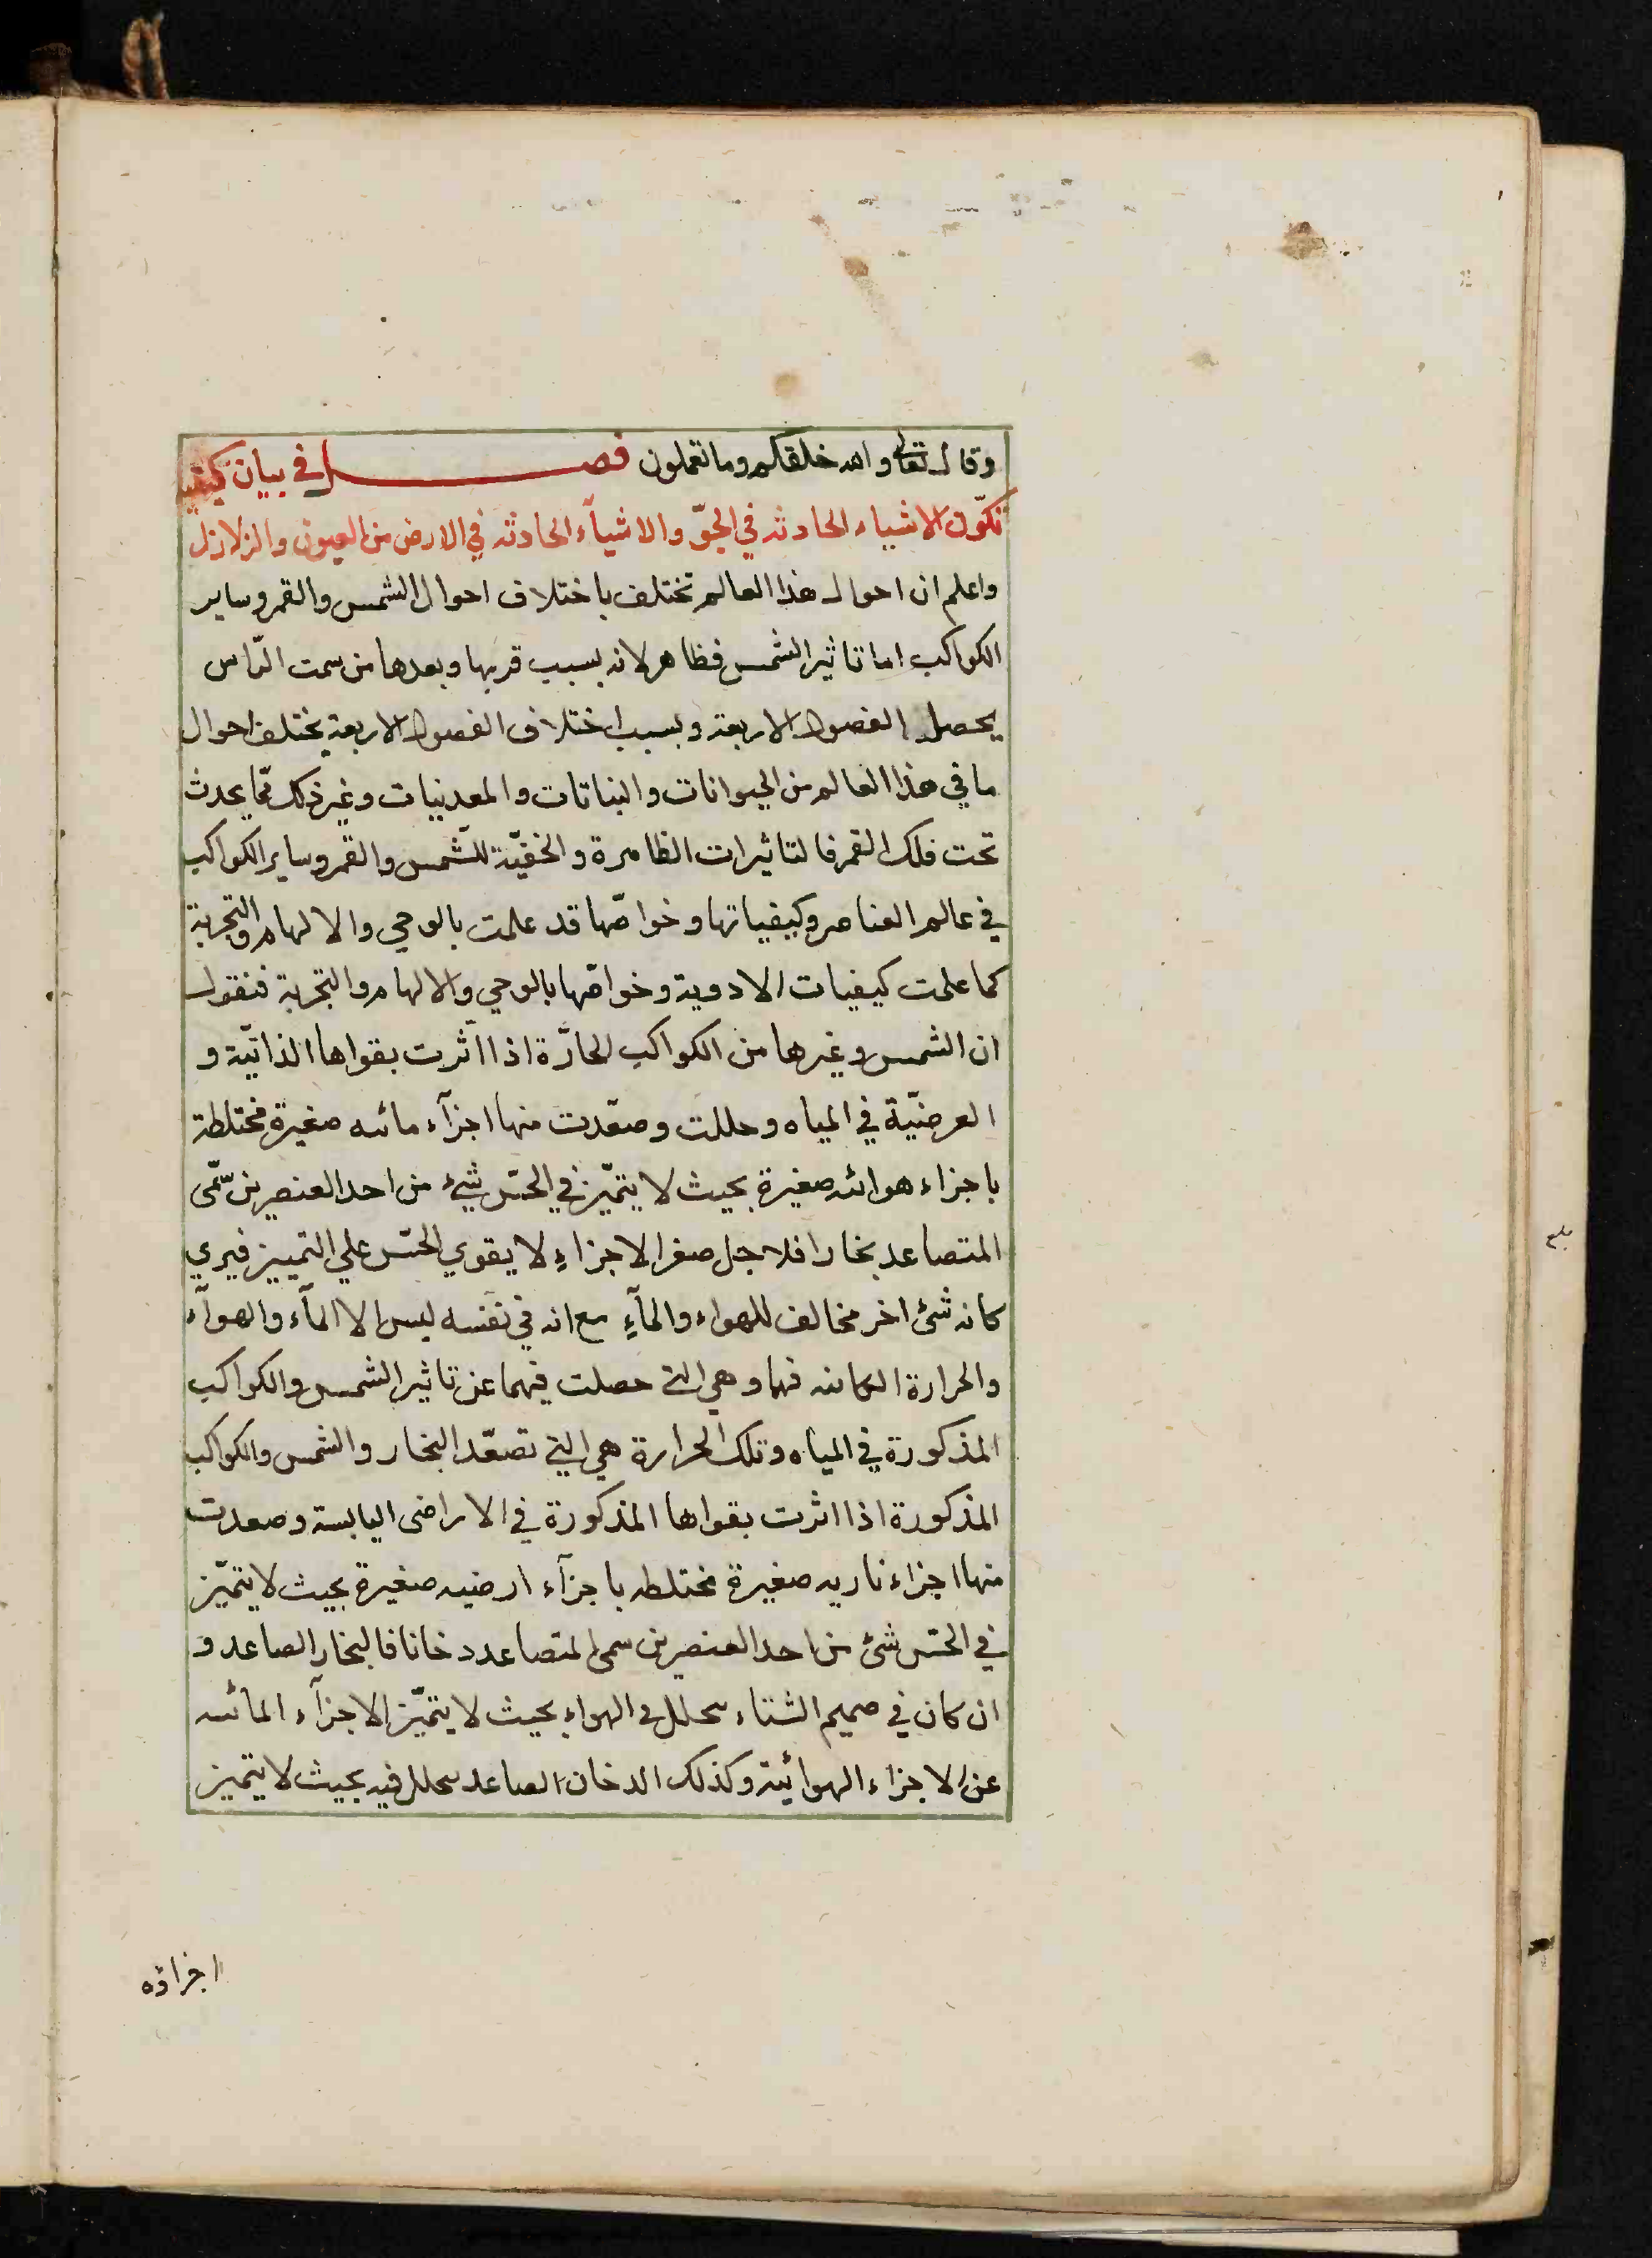 وقال تعالى والله خلقكم وما تعملون فصل في بيان كيفية
تكوّن الاشياء الحادثه في الجوّ والاشيآء الحادثه في الارض من العيون والزلازل
واعلم ان احوال هذا العالم تختلف باختلاف احوال الشمس والقمر وساير
الكواكب اما تاثير الشمس فظاهر لانه بسبب قربها وبعدها من سمت الرّاس
يحصل الفصول الاربعة وبسبب اختلاف الفصول الاربعة يختلف احوال
ما في هذا العالم من الحيوانات والنباتات والمعدنيات وغير ذلك ممّا يحدث
تحت فلك القمر فالتاثيرات الظاهرة والخفيّة للشّمس والقمر وساير الكواكب
في عالم العناصر وكيفياتها وخواصّها قد علمت بالوحي والالهام والتجربة
كما علمت كيفيات الادوية وخواصّها بالوحي والالهام والتجربة فنقول
ان الشمس وغيرها من الكواكب الحارّة اذا اثّرت بقواها الذاتيّة و
العرضيّة في المياه وحللت وصعّدت منها اجزآء مائيه صغيرة مختلطة
باجزاء هوائيه صغيرة بحيث لا يتميّز في الحسّ شيء من احد العنصرين سمّى
المتصاعد بخارا فلاجل صغر الاجزاءِ لا يقوي الحسّ علي التمييز فيري
كانه شئ اخر مخالف للهواء والمآءِ مع انه في نفسه ليس الا المآء والهوآء
والحرارة الكائنه فيهما وهي التي حصلت فيهما عن تاثير الشمس والكواكب
المذكورة في المياه وتلك الحرارة هي التي تصعّد البخار والشمس والكواكب
المذكورة اذا اثرت بقواها المذكورة في الاراضى اليابسة وصعدت
منها اجزاء ناريه صغيرة مختلطه باجزآء ارضيه صغيرة بحيث لا يتميّز
في الحسّ شئ من احد العنصرين سمى المتصاعد دخانا فالبخار الصاعد و
ان كان في صميم الشتاء يتحلل في الهواءِ بحيث لا يتميّز الاجزآء المائيه
عن الاجزاء الهوائية وكذلك الدخان الصاعد يتحلل فيه بحيث لا يتميز
اجزاؤه